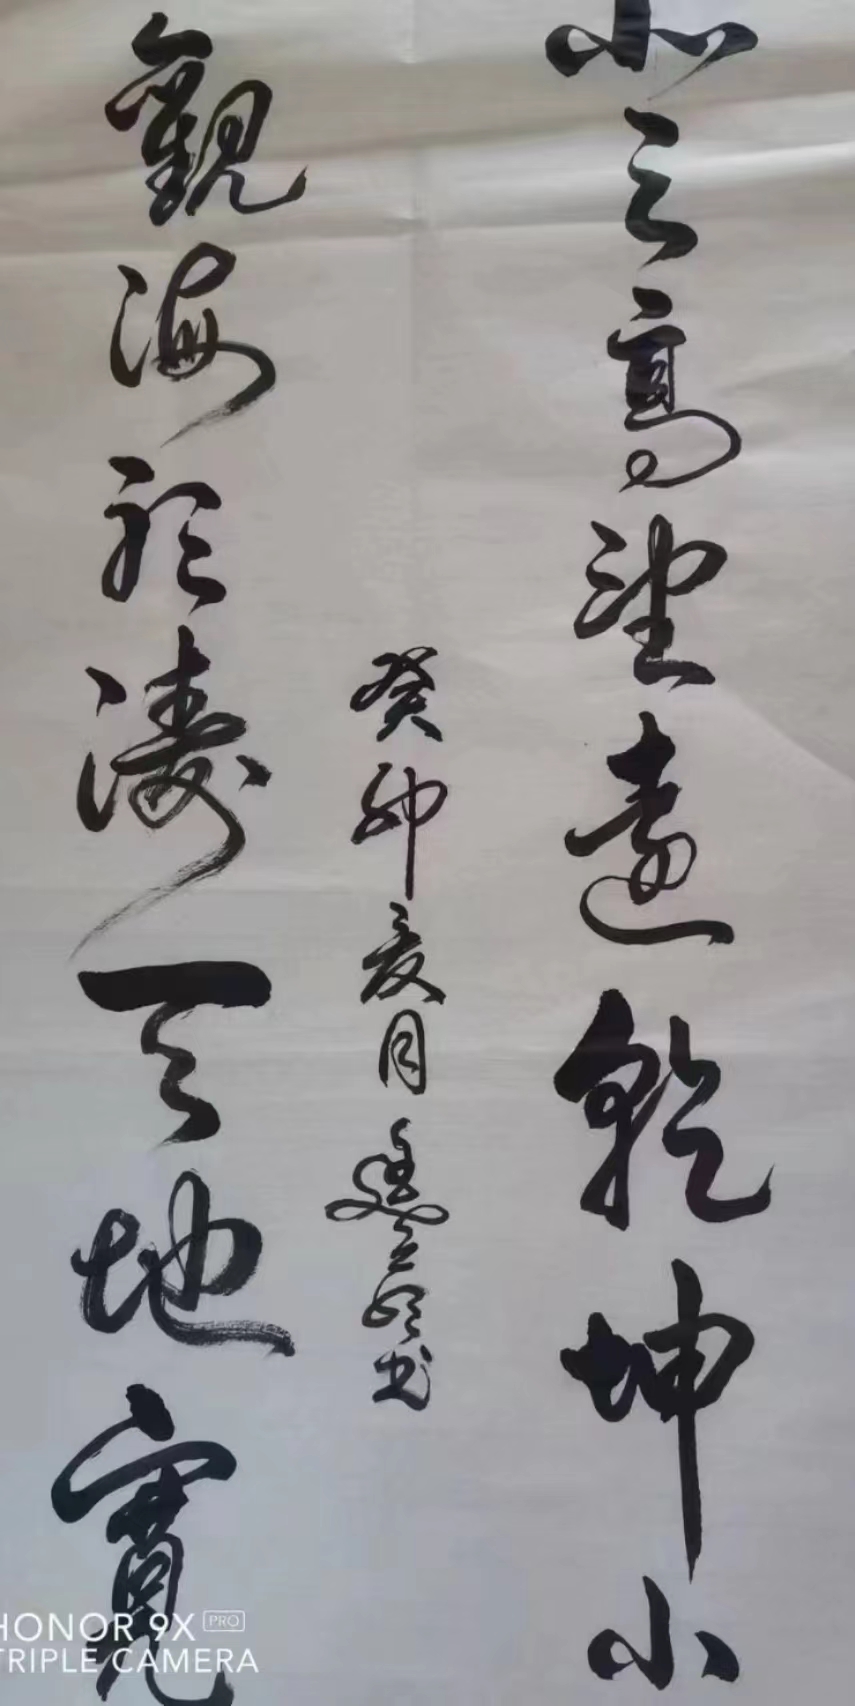 云高望遠乾坤小
觀海聽濤天地寬
癸卯亥月書
HONOR 9X PRO
TRIPLE CAMERA